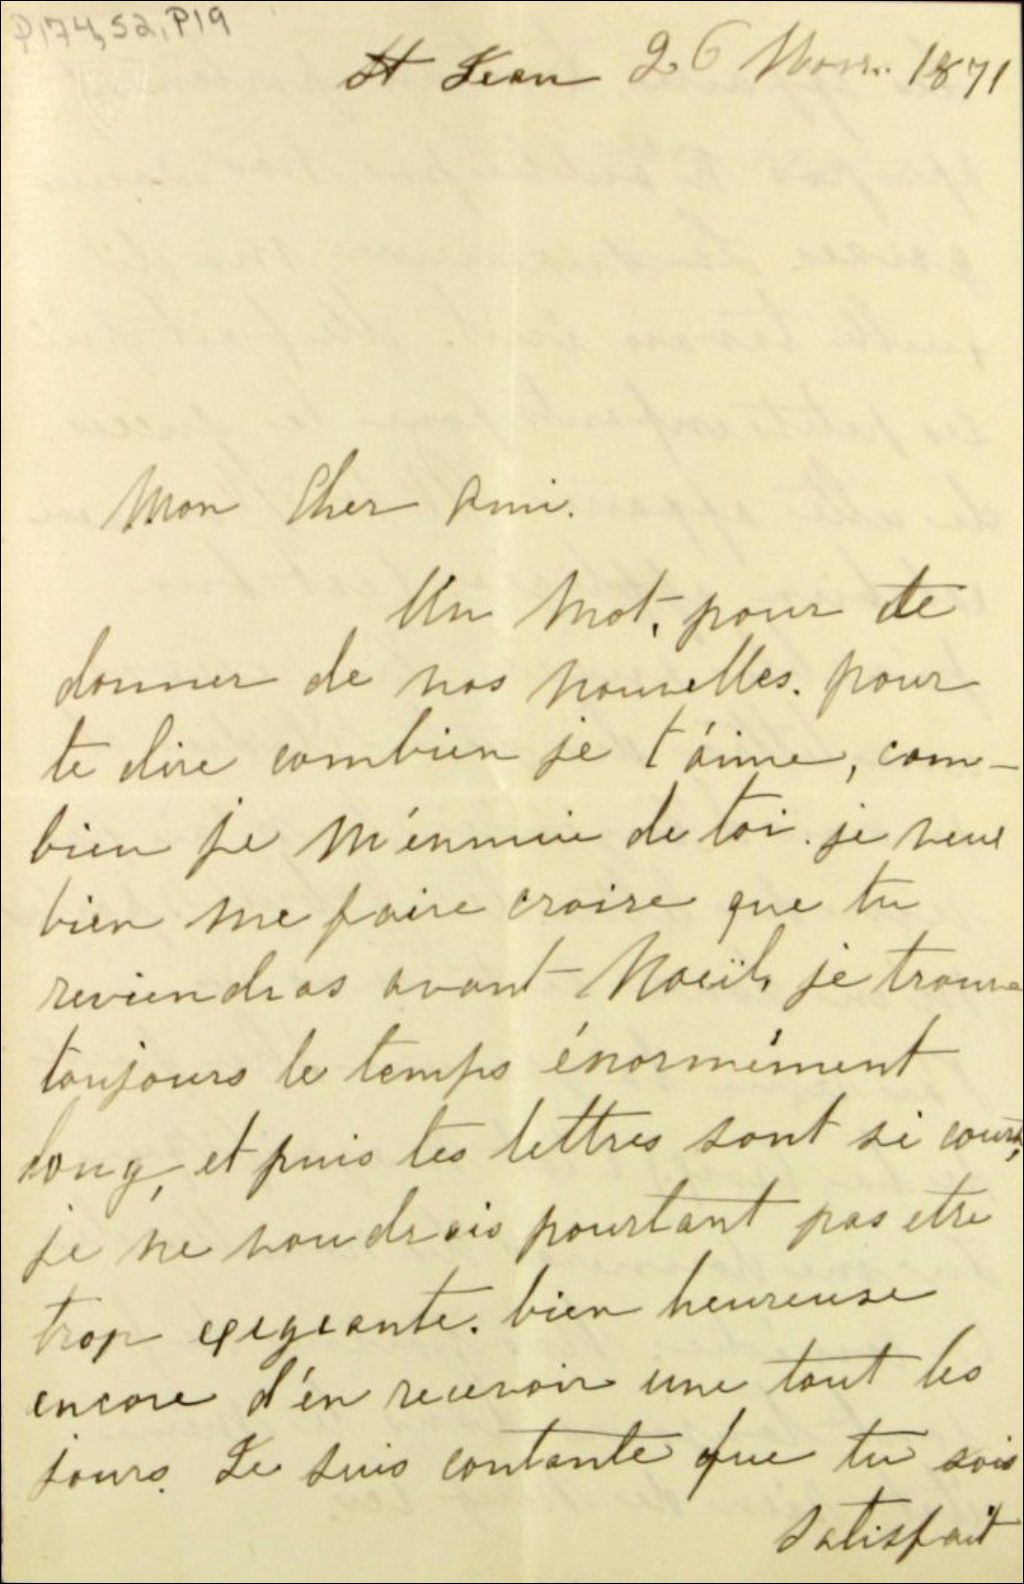 P174,S2,P19
St Jean 26 Nov. 1871
Mon Cher Ami.
Un Mot, pour te
donner de nos nouvelles. pour
te dire combien je t'aime, com-
bien je M'ennuie de toi. je veux
bien me faire croire que tu
reviendras avant Noeïl, je trouve
toujours le temps énormément
long, et puis tes lettres sont si courts,
je ne voudrais pourtant pas etre
trop exigeante. bien heureuse
encore d'en recevoir une tout les
jours. Je suis contante que tu sois
satisfait